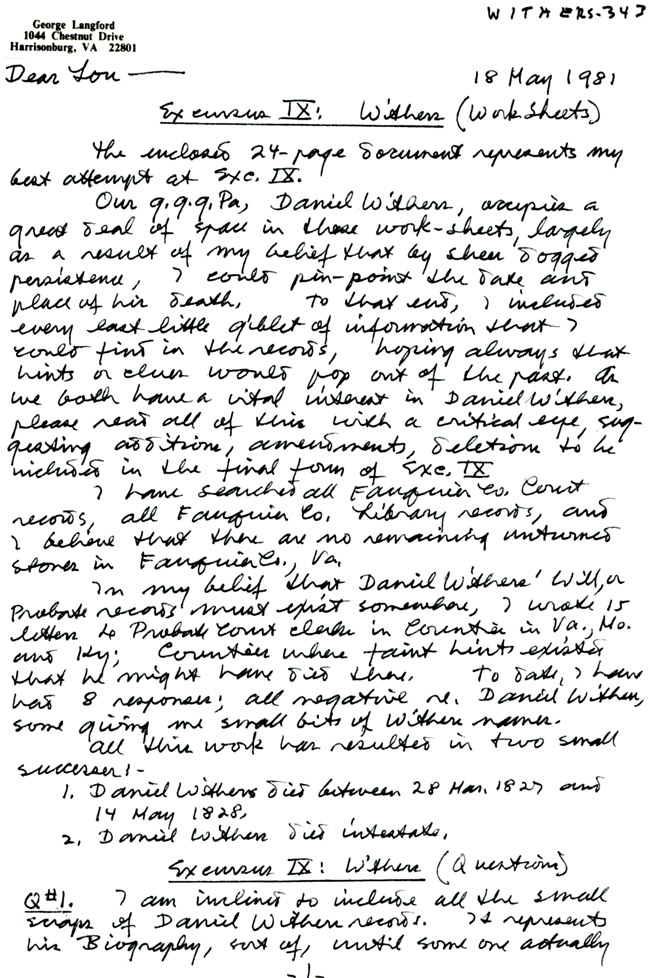 WITHERS-343
George Langford
1044 Chestnut Drive
Harrisonburg, VA 22801
Dear Lou —
18 May 1981
Excursus IX: Withers (Work Sheets)
The enclosed 24-page document represents my
best attempt at Exc. IX.
Our g.g.g.Pa, Daniel Withers, occupies a
great deal of space in these work-sheets, largely
as a result of my belief that by sheer dogged
persistence, I could pin-point the date and
place of his death. To that end, I included
every last little giblet of information that I
could find in the records, hoping always that
hints or clues would pop out of the past. As
we both have a vital interest in Daniel Withers,
please read all of this with a critical eye, sug-
gesting additions, amendments, deletions to be
included in the final form of Exc. IX
I have searched all Fauquier Co. Court
records, all Fauquier Co. Library records, and
I believe that there are no remaining unturned
stones in Fauquier Co., Va.
In my belief that Daniel Withers' Will, or
Probate records must exist somewhere, I wrote 15
letters to Probate Court clerks in Counties in Va., Mo.
and Ky; Counties where faint hints existed
that he might have died there. To date, I have
had 8 responses; all negative re. Daniel Withers,
some giving me small bits of Withers names.
All this work has resulted in two small
successes:-
1. Daniel Withers died between 28 Mar. 1827 and
14 May 1828.
2. Daniel Withers died intestate.
Excursus IX: Withers (Questions)
Q#1. I am inclined to include all the small
scraps of Daniel Withers records. It represents
his Biography, sort of, until some one actually
-1-